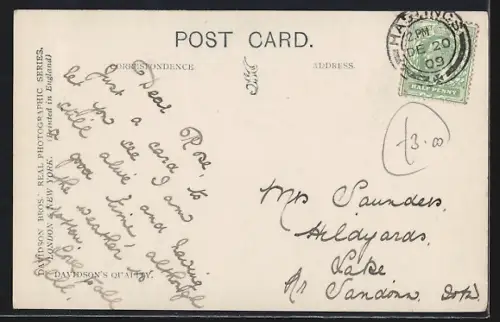 POST CARD.
CORRESPONDENCE.
ADDRESS.
DAVIDSON BROS.' REAL PHOTOGRAPHIC SERIES.
LONDON & NEW YORK. (Printed in England)
DAVIDSON'S QUALITY.
HASTINGS
2 PM
DE 20
09
HALF PENNY
£3.00
Dear Rose,
Just a card to
let you see I am
still alive and having
a good time, although
the weather is
rotten.
Love to all
Mrs Saunders,
Hildyards,
Lake
Nr Sandown